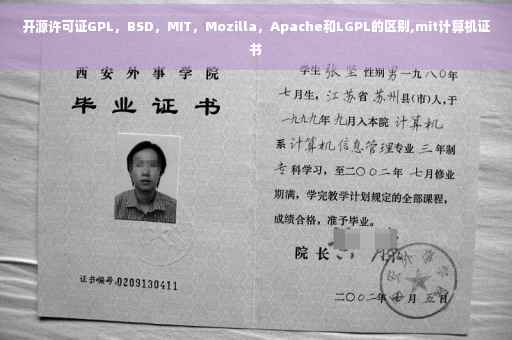 开源许可证GPL，BSD，MIT，Mozilla，Apache和LGPL的区别,mit计算机证
书
西安外事学院
毕业证书
证书编号:0209130411
学生 张坚 性别男一九八〇年
七月生，江苏省苏州县(市)人,于
一九九九年九月入本院 计算机
系计算机信息管理专业 三年制
专科学习，至二〇〇二年七月修业
期满，学完教学计划规定的全部课程，
成绩合格，准予毕业。
院长
二〇〇二年 月五日